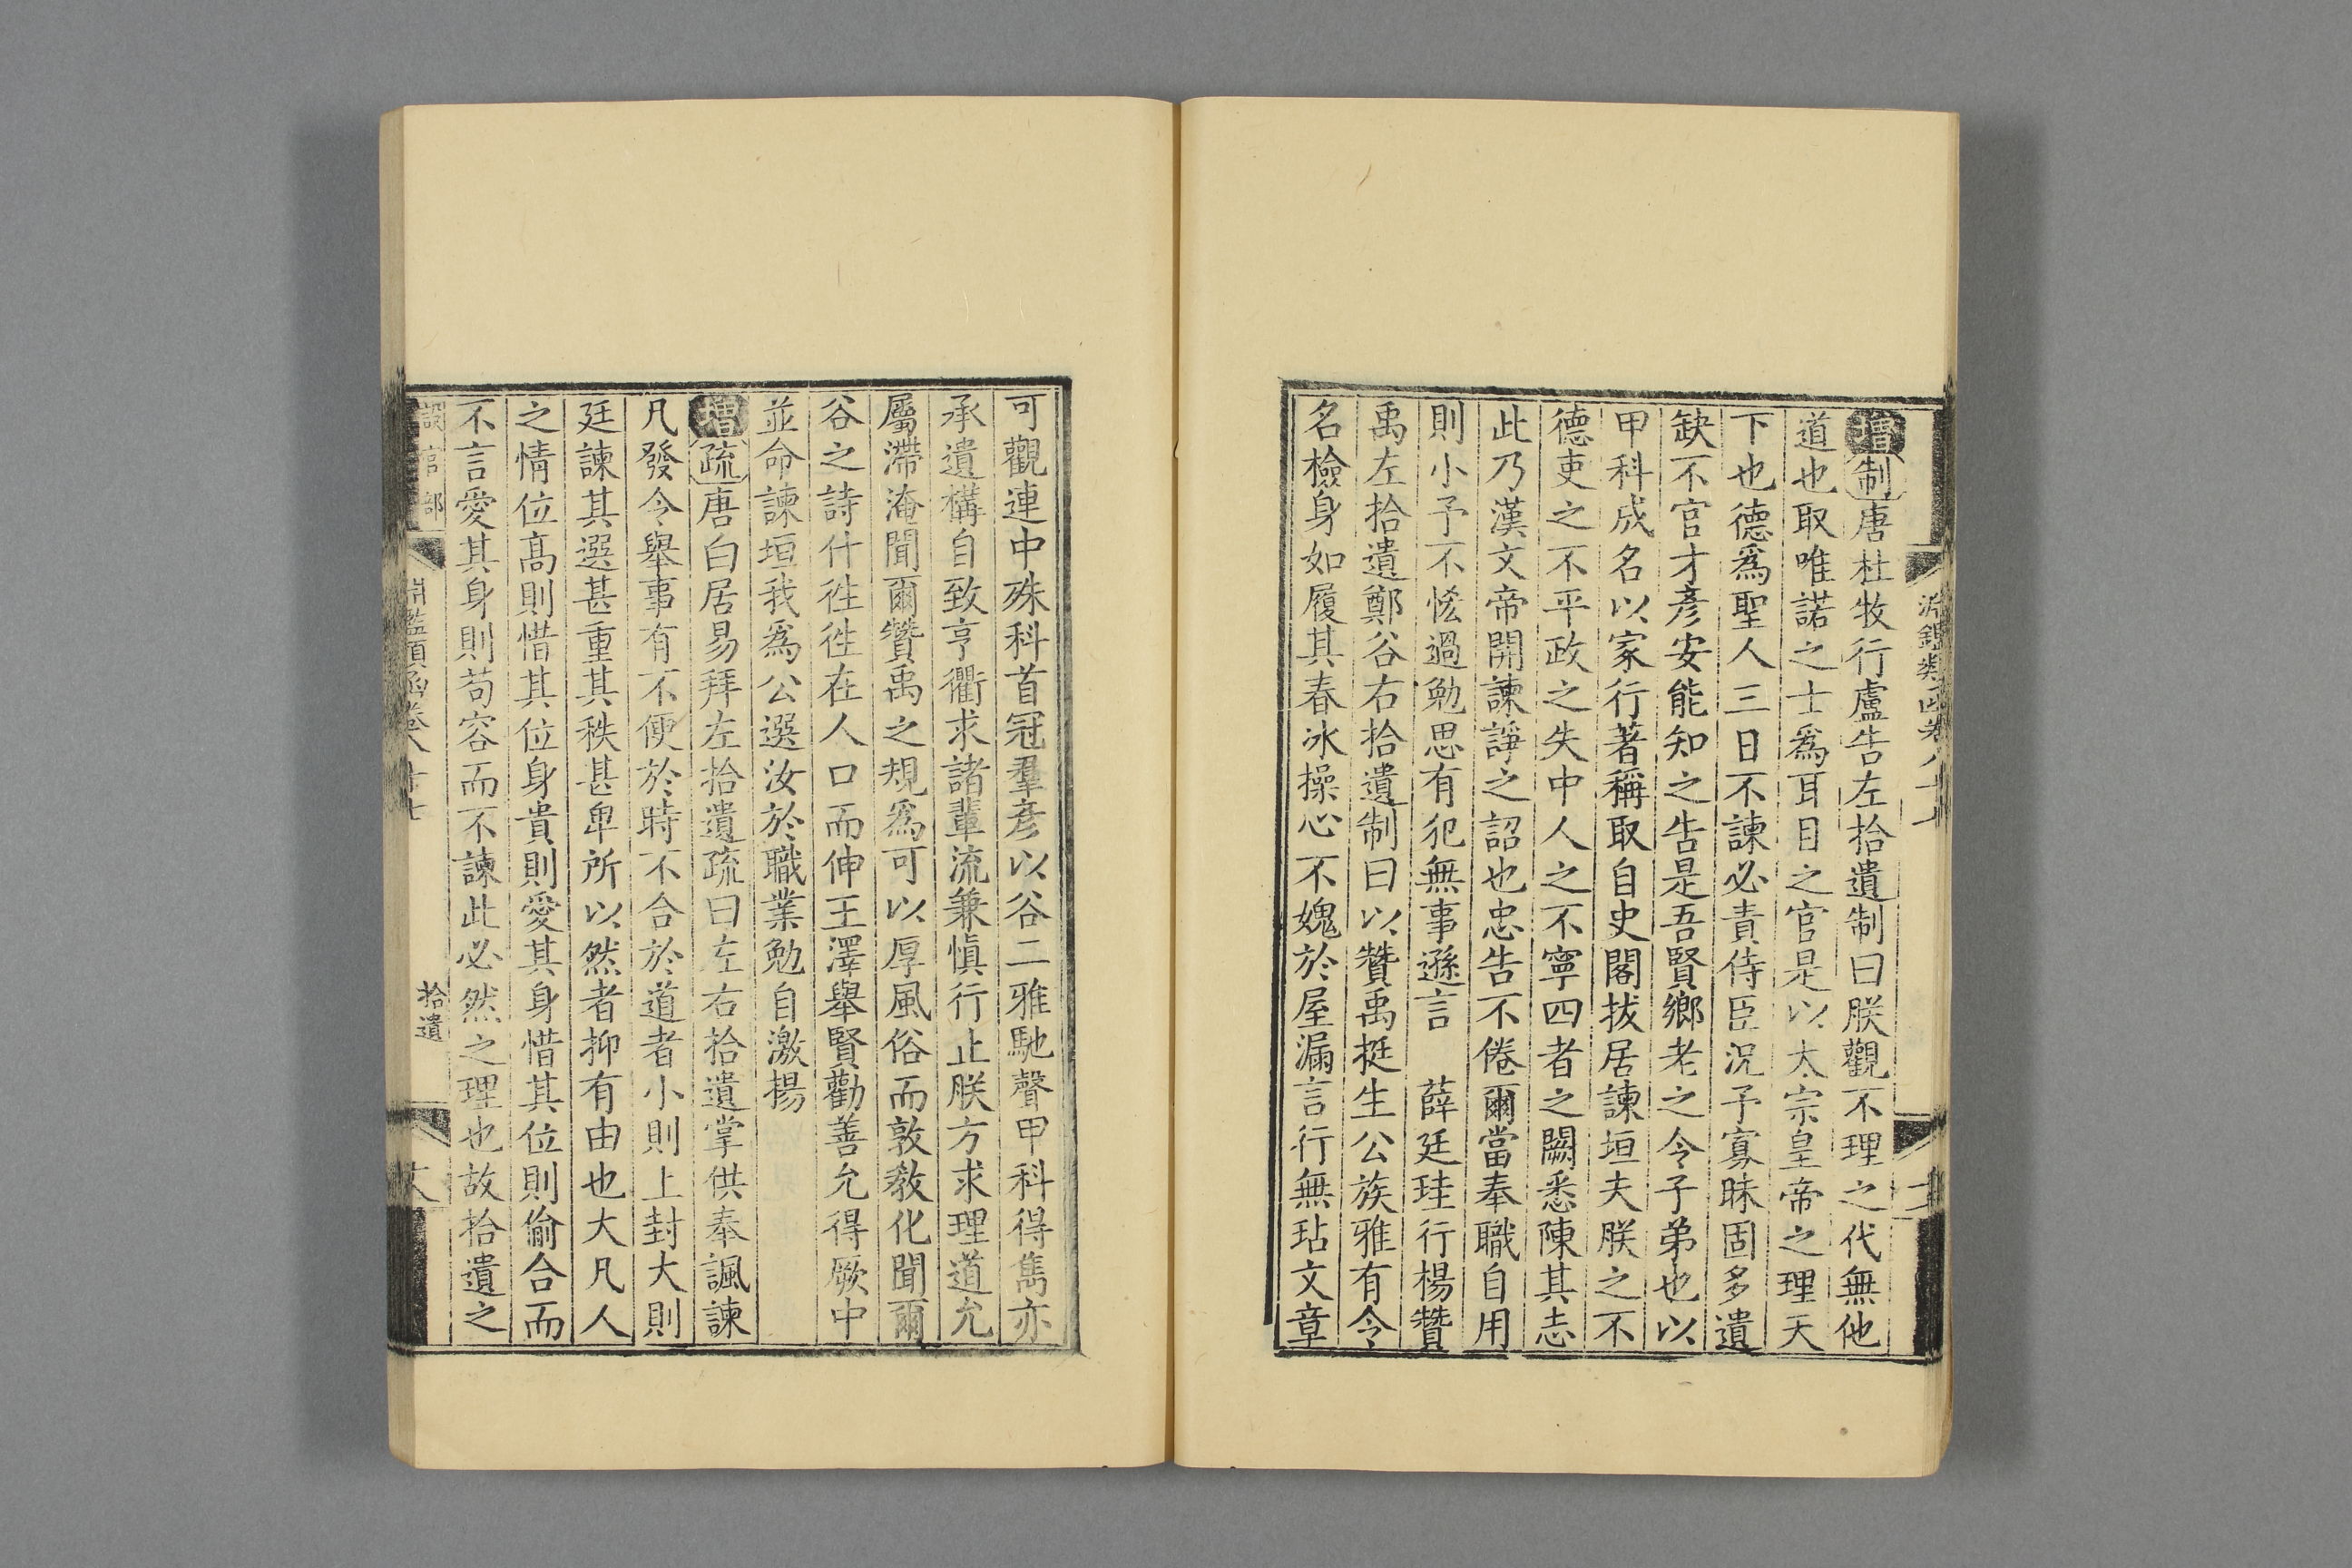 增制唐杜牧行盧告左拾遺制曰朕觀不理之代無他
道也取唯諾之士爲耳目之官是以太宗皇帝之理天
下也德爲聖人三日不諫必責侍臣況予寡昧固多遺
缺不官才彥安能知之告是吾賢鄉老之令子弟也以
甲科成名以家行著稱取自史閣拔居諫垣夫朕之不
德吏之不平政之失中人之不寧四者之闕悉陳其志
此乃漢文帝開諫諍之詔也忠告不倦爾當奉職自用
則小予不恡過勉思有犯無事遜言　薛廷珪行楊贊
禹左拾遺鄭谷右拾遺制曰以贊禹挺生公族雅有令
名檢身如履其春冰操心不媿於屋漏言行無玷文章
可觀連中殊科首冠羣彥以谷二雅馳聲甲科得雋亦
承遺構自致亨衢求諸輩流兼愼行止朕方求理道允
屬滯淹聞爾贊禹之規爲可以厚風俗而敦敎化聞爾
谷之詩什徃徃在人口而伸王澤舉賢勸善允得厥中
並命諫垣我爲公選汝於職業勉自激揚
增疏唐白居易拜左拾遺疏曰左右拾遺掌供奉諷諫
凡發令舉事有不便於時不合於道者小則上封大則
廷諫其選甚重其秩甚卑所以然者抑有由也大凡人
之情位高則惜其位身貴則愛其身惜其位則偷合而
不言愛其身則苟容而不諫此必然之理也故拾遺之
設官部
淵鑑類函卷八十七
拾遺